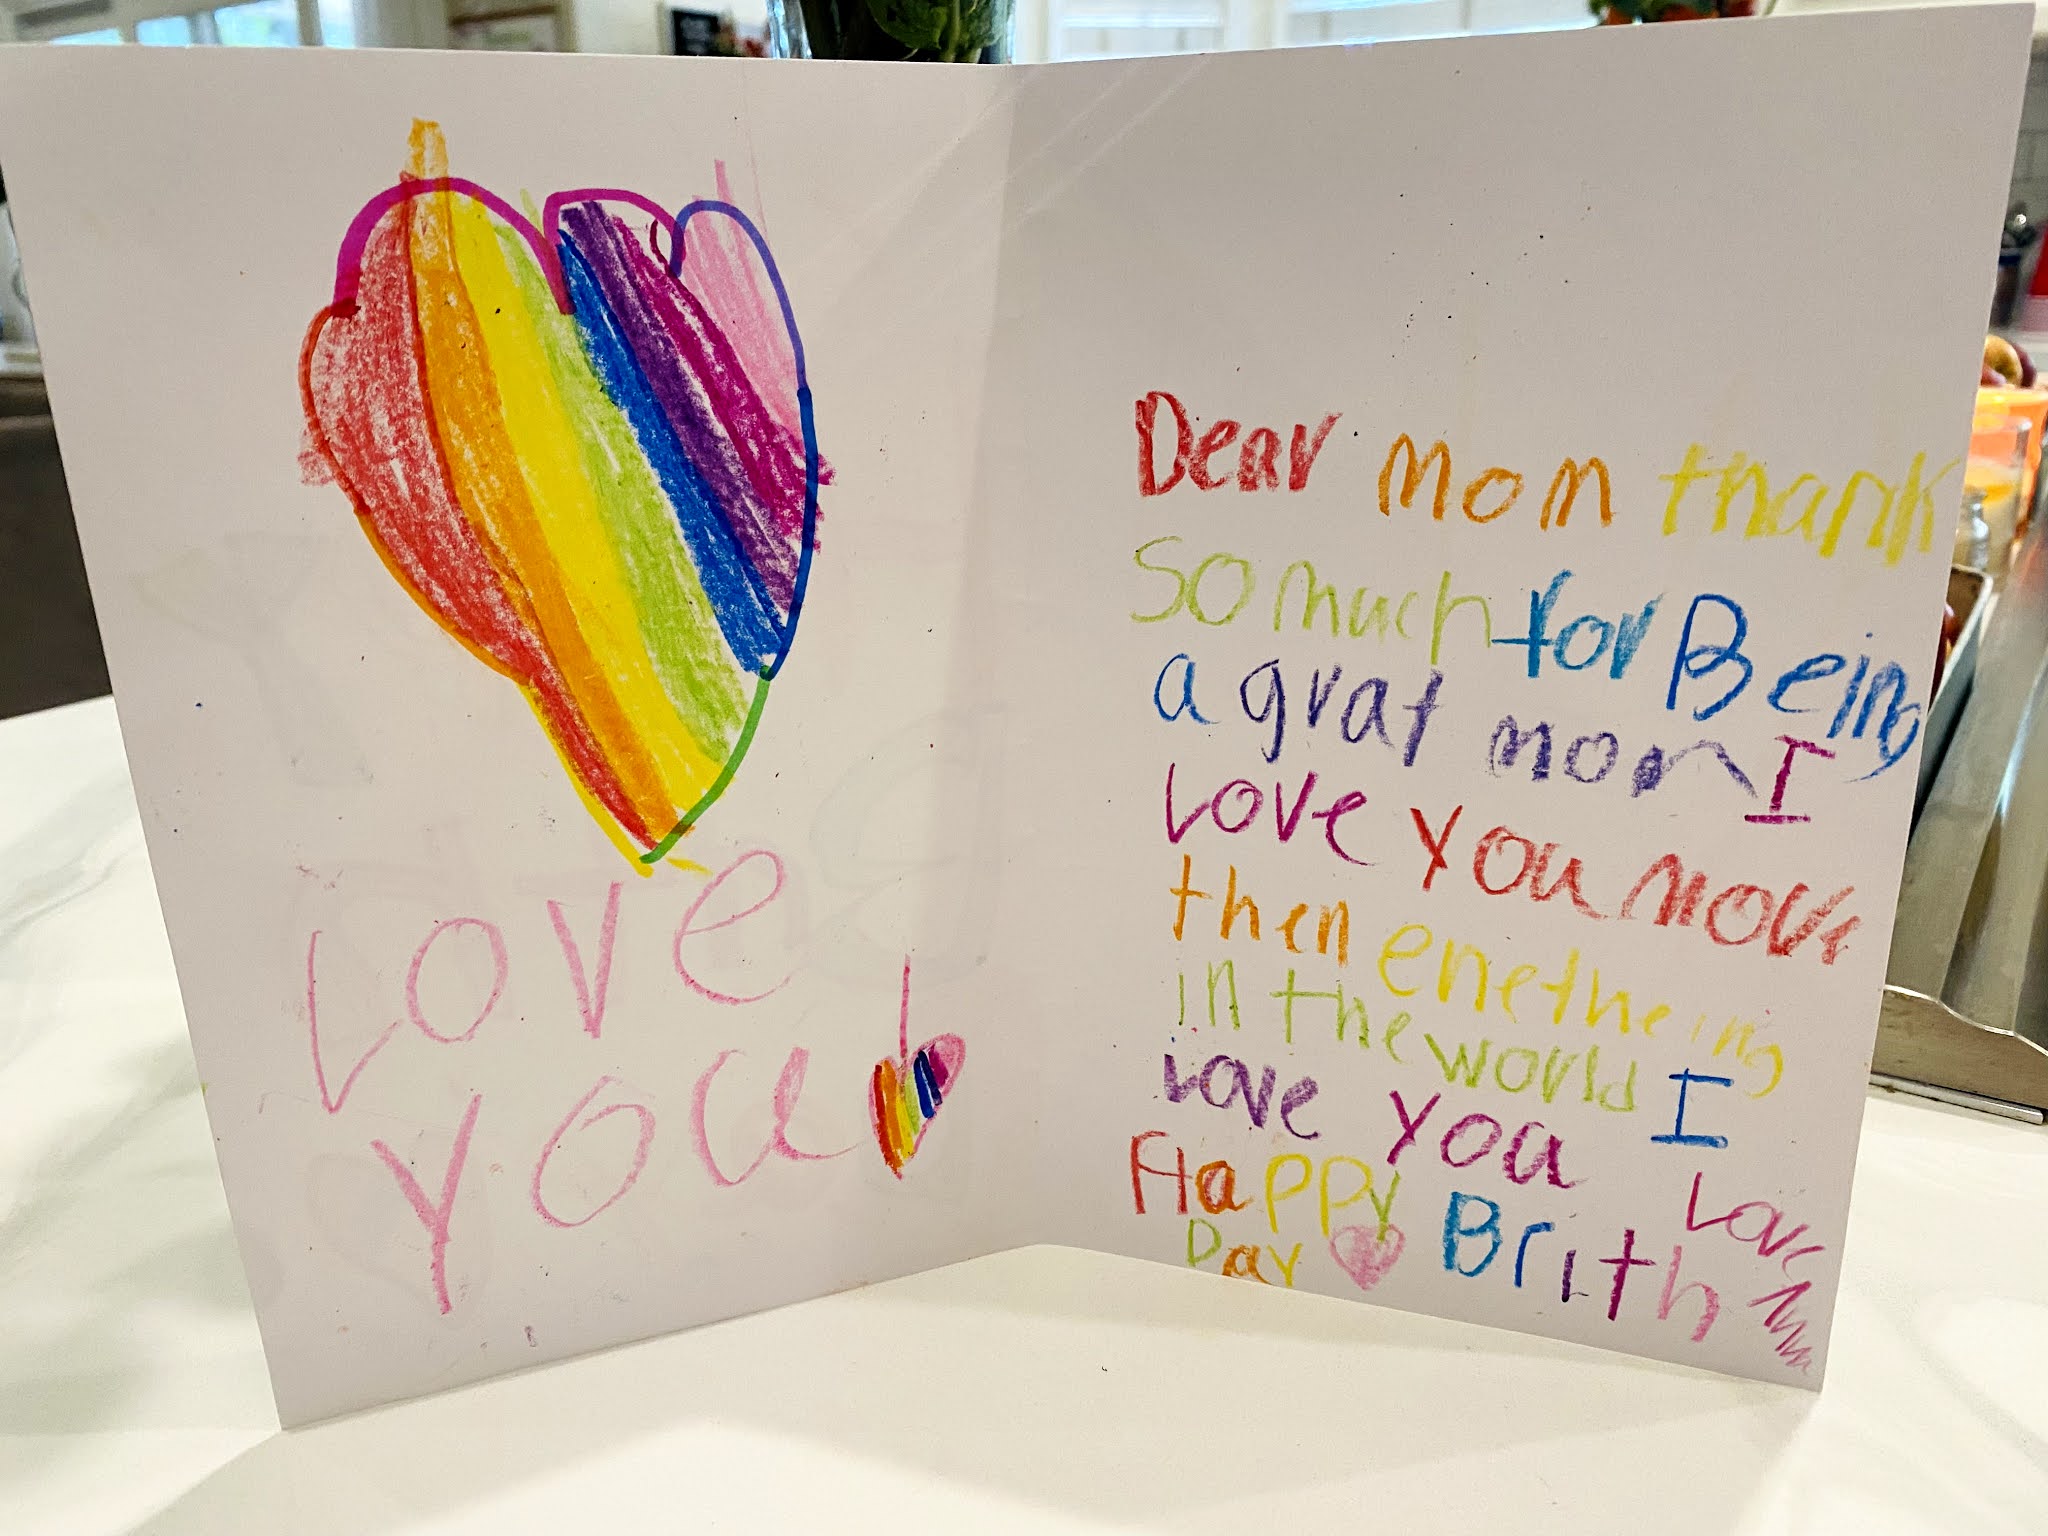 Love
you
Dear mom thank
so much for Being
a grat mom I
Love you more
then enetheing
in the world I
Love you
Happy Brith Love
Day